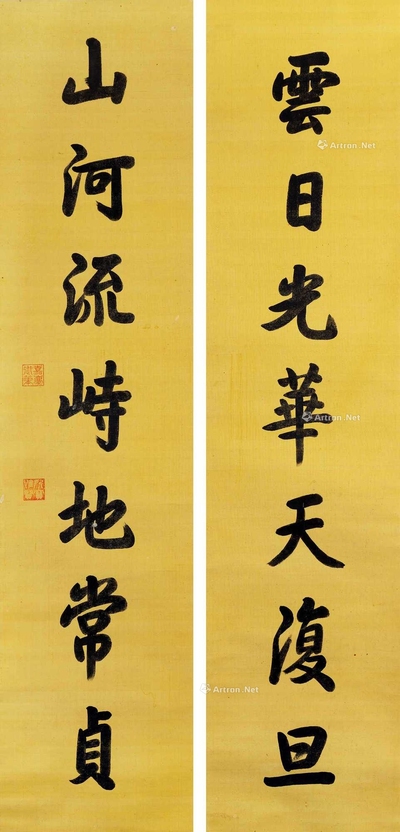 雲日光華天復旦
山河流峙地常貞
Artron.Net
Artron.Net
Artron.Net